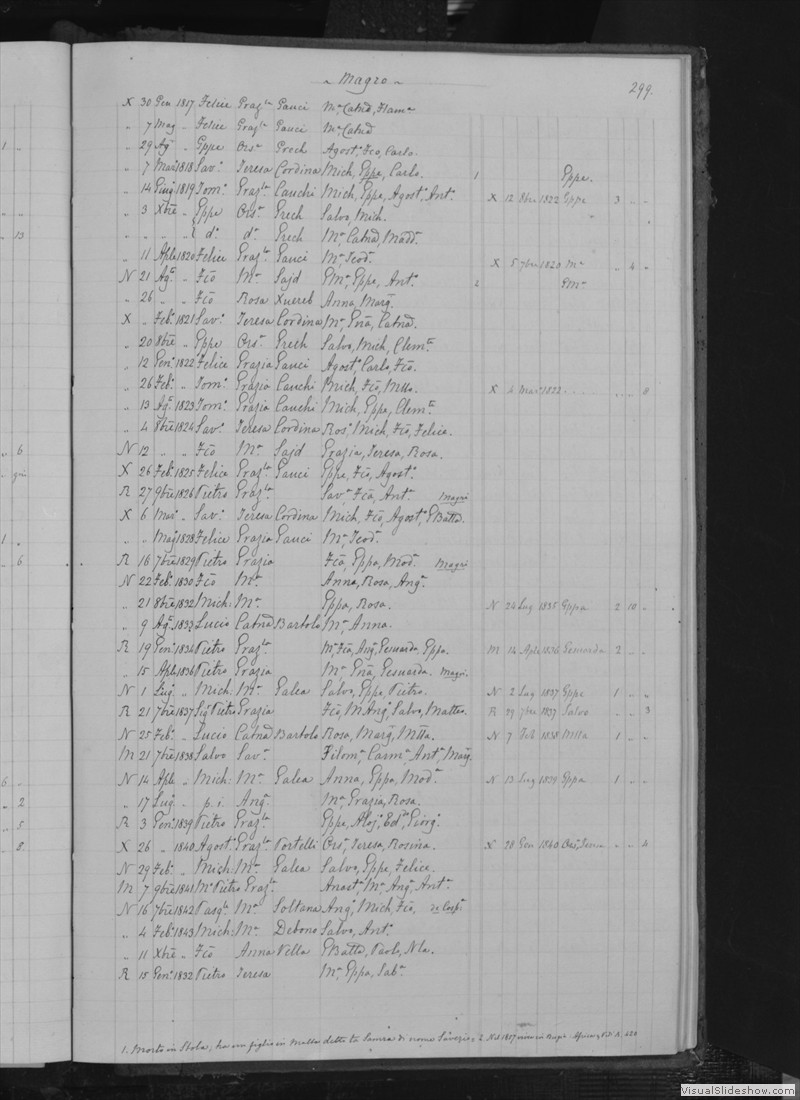 ~ Magro ~
299.
X 30 Gen 1817 Felice Grazla Gauci Ma, Catnd, Flama
„ 7 Mag „ Felice Grazla Gauci Ma, Catnd
1 „ 29 Ago „ Gppe Orsa Grech Agosta, Fco, Carlo.
„ 7 Mar 1818 Savo Teresa Cordina Mich, Gppe, Carlo. 1 Gppe.
„ 14 Giug 1819 Tomo Grazla Cauchi Mich, Gppa, Agosto, Anta X 12 8bre 1822 Gppe 3 „ „
„ 3 Xbre „ Gppe Orsa Grech Salvo, Mich.
„ 13 „ „ „ „ do do Grech Ma, Catnd, Madda
„ 11 Aple 1820 Felice Grazla Gauci Ma, Teod. X 5 7bre 1820 Ma „ 4 „
N 21 Ago „ Fco Ma Sajd Gma, Gppe, Anto 2 Gma
„ 26 „ „ Fco Rosa Xuereb Anna, Marga
X „ Febo 1821 Savo Teresa Cordina Ma, Gna, Catnd.
„ 20 8bre „ Gppe Orsa Grech Salvo, Mich, Clemte
„ 12 Geno 1822 Felice Grazia Gauci Agosto, Carlo, Fco.
„ 26 Febo „ Tomo Grazia Cauchi Mich, Fco, Mtta. X 4 Mar 1822 . . . . „ „ 8
„ 13 Ago 1823 Tomo Grazia Cauchi Mich, Gppe, Clemte
„ 4 8bre 1824 Savo Teresa Cordina Rosa, Mich, Fco, Felice.
„ 6 N 12 „ „ Fco Ma Sajd Grazia, Teresa, Rosa.
X 26 Febo 1825 Felice Grazla Gauci Gppe, Fco, Agosto
R 27 9bre 1826 Pietro Grazla Sava, Fca, Anta Magri
X 6 Mar „ Savo Teresa Cordina Mich, Fco, Agosto, GBatta.
1 „ „ Mag 1828 Felice Grazia Gauci Ma, Teod.
„ 6 R 16 7bre 1829 Pietro Grazia Fca, Gppa, Moda. Magri
N 22 Febo 1830 Fco Ma Anna, Rosa, Anga.
„ 21 8bre 1832 Mich: Ma Gppa, Rosa. N 24 Lug 1835 Gppa 2 10 „
„ 9 Ago 1833 Lucio Catnd Bartolo Ma, Anna.
R 19 Geno 1834 Pietro Grazla Ma, Fca, Anga, Gesuarda, Gppa. M 14 Aple 1836 Gesuarda 2 „ „
„ 15 Aple 1836 Pietro Grazia Ma, Gna, Gesuarda. Magri.
N 1 Lug „ Mich: Ma Galea Salvo, Gppe, Pietro. N 2 Lug 1837 Gppe 1 „ „
R 21 7bre 1837 Sigr Pietro Grazia Fco, M.Ango, Salvo, Matteo. R 29 7bre 1837 Salvo „ „ 3
N 25 Febo „ Lucio Catnd Bartolo Rosa, Marga, Mtta. N 7 Feb 1838 Mtta 1 „ „
M 21 7bre 1838 Salvo Sava Filoma, Carma, Anta, Marga.
6 „ N 14 Aple „ Mich: Ma Galea Anna, Gppa, Moda. N 13 Lug 1839 Gppa 1 „ „
„ 2 „ 17 Lugo „ p. i. Anga Ma, Grazia, Rosa.
„ 5 R 3 Geno 1839 Pietro Grazla Gppe, Aloj, Eda, Giorgo
„ 8 X 26 „ 1840 Agosto Grazla Portelli Orsa, Teresa, Rosina. X 28 Gen 1840 „ „ 4
N 29 Febo „ Mich: Ma Galea Salvo, Gppe, Felice.
M 7 9bre 1841 Mo Pietro Grazla Anasta, Ma, Anga, Anta
N 16 7bre 1842 Pasqle Ma Soltana Ango, Mich, Fco,
„ 4 Febo 1843 Mich: Ma Debono Salvo, Anto
„ 11 Xbre „ Fco Anna Vella GBatta, Paolo, Nla.
R 15 Geno 1832 Pietro Teresa Ma, Gppa, Saba
1. Morto in ha un figlio in Malta detto ta di nome 2 1857
VisualSlideshow.com